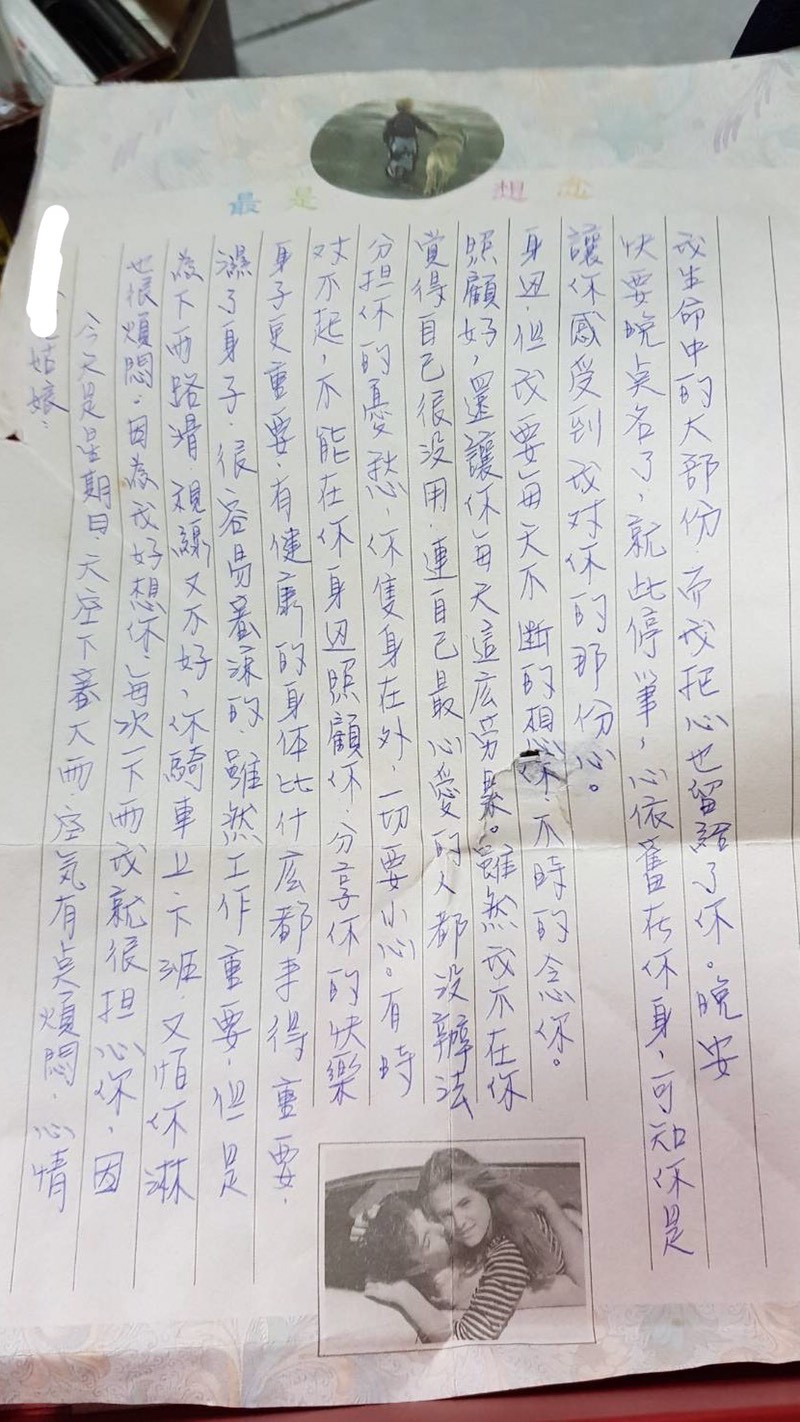 最是 想念
姑娘:
今天是星期日,天空下著大雨,空氣有点煩悶,心情
也很煩悶。因為我好想你,每次一下雨我就很担心你,因
為下雨路滑,視線又不好,你騎車上下班,又怕你淋
濕了身子,很容易著涼的,雖然工作重要,但是
身子更重要,有健康的身体比什庅都事得重要,
对不起,不能在你身边照顧你,分享你的快樂
分担你的憂愁,你隻身在外,一切要小心。有時
覚得自己很没用,連自己最心愛的人都没辦法
照顧好,還讓你每天這庅劳累。雖然我不在你
身边,但我要每天不断的想你,不時的念你。
讓你感受到我对你的那份心。
快要晚点名了,就此停筆,心依舊在你身,可知你是
我生命中的大部份,而我把心也留給了你。晚安